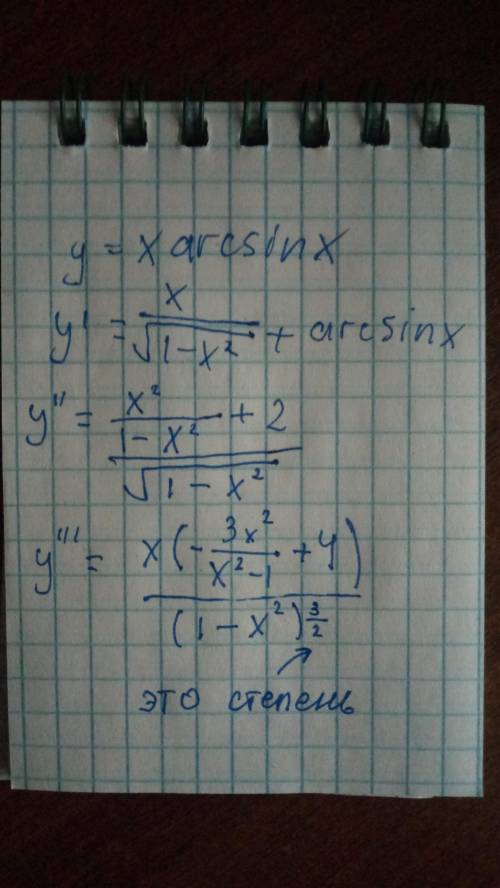 y = x arcsinx
y' = x/√(1-x²) + arcsinx
y'' = (x²/(1-x²) + 2)/√(1-x²)
y''' = x(-3x²/(x²-1) + 4)/(1-x²)^(3/2)
это степень